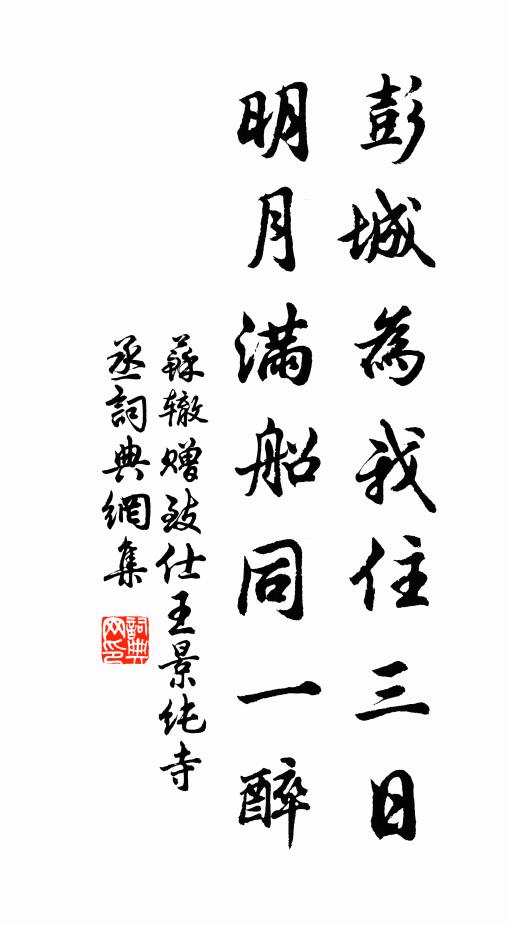 彭城為我住三日
明月滿船同一醉
蘇辙赠致仕王景纯寺
丞詞典網集
詞典
网印